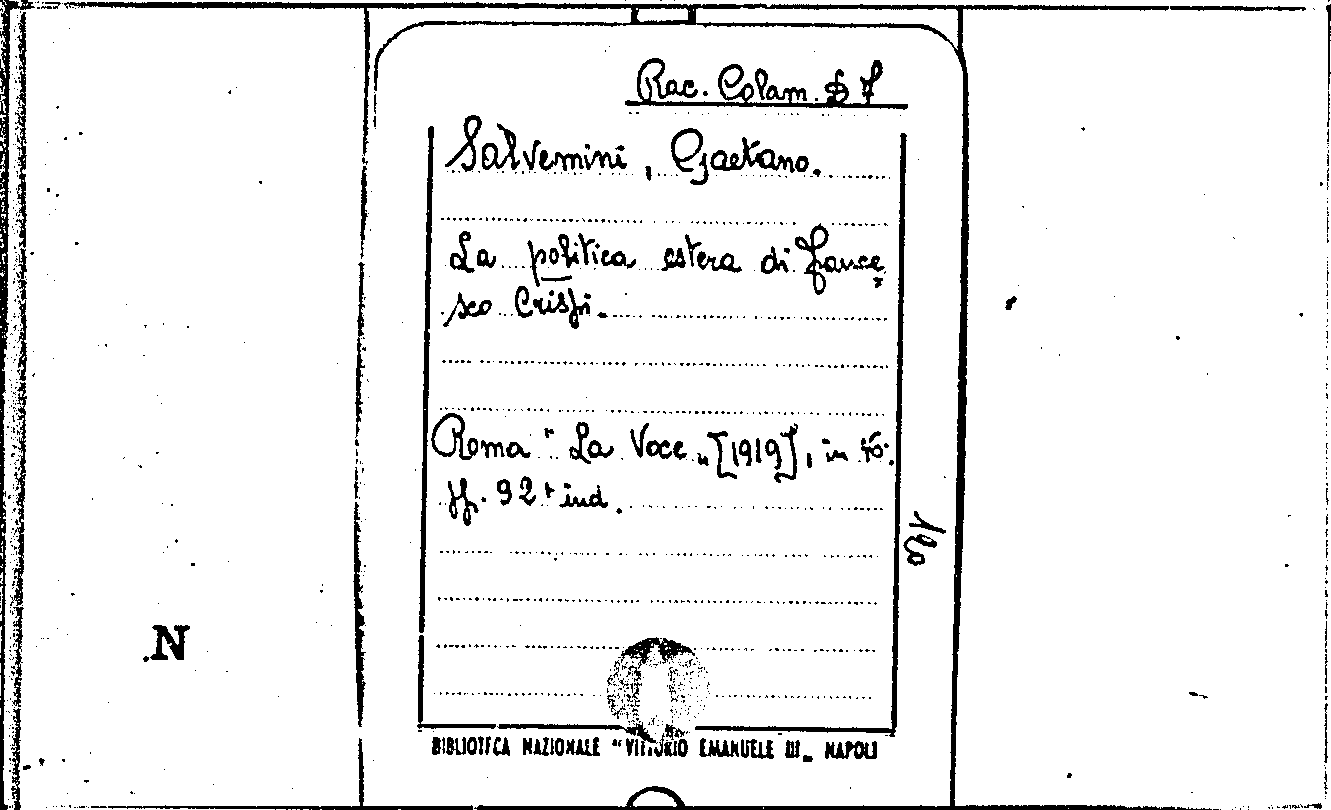 Rac. Colam. B 7
Salvemini, Gaetano.
La politica estera di France
sco Crispi.
Roma " La Voce „ [1919], in 16°.
pp. 92 + ind.
N
BIBLIOTECA NAZIONALE "VITTORIO EMANUELE III„ NAPOLI